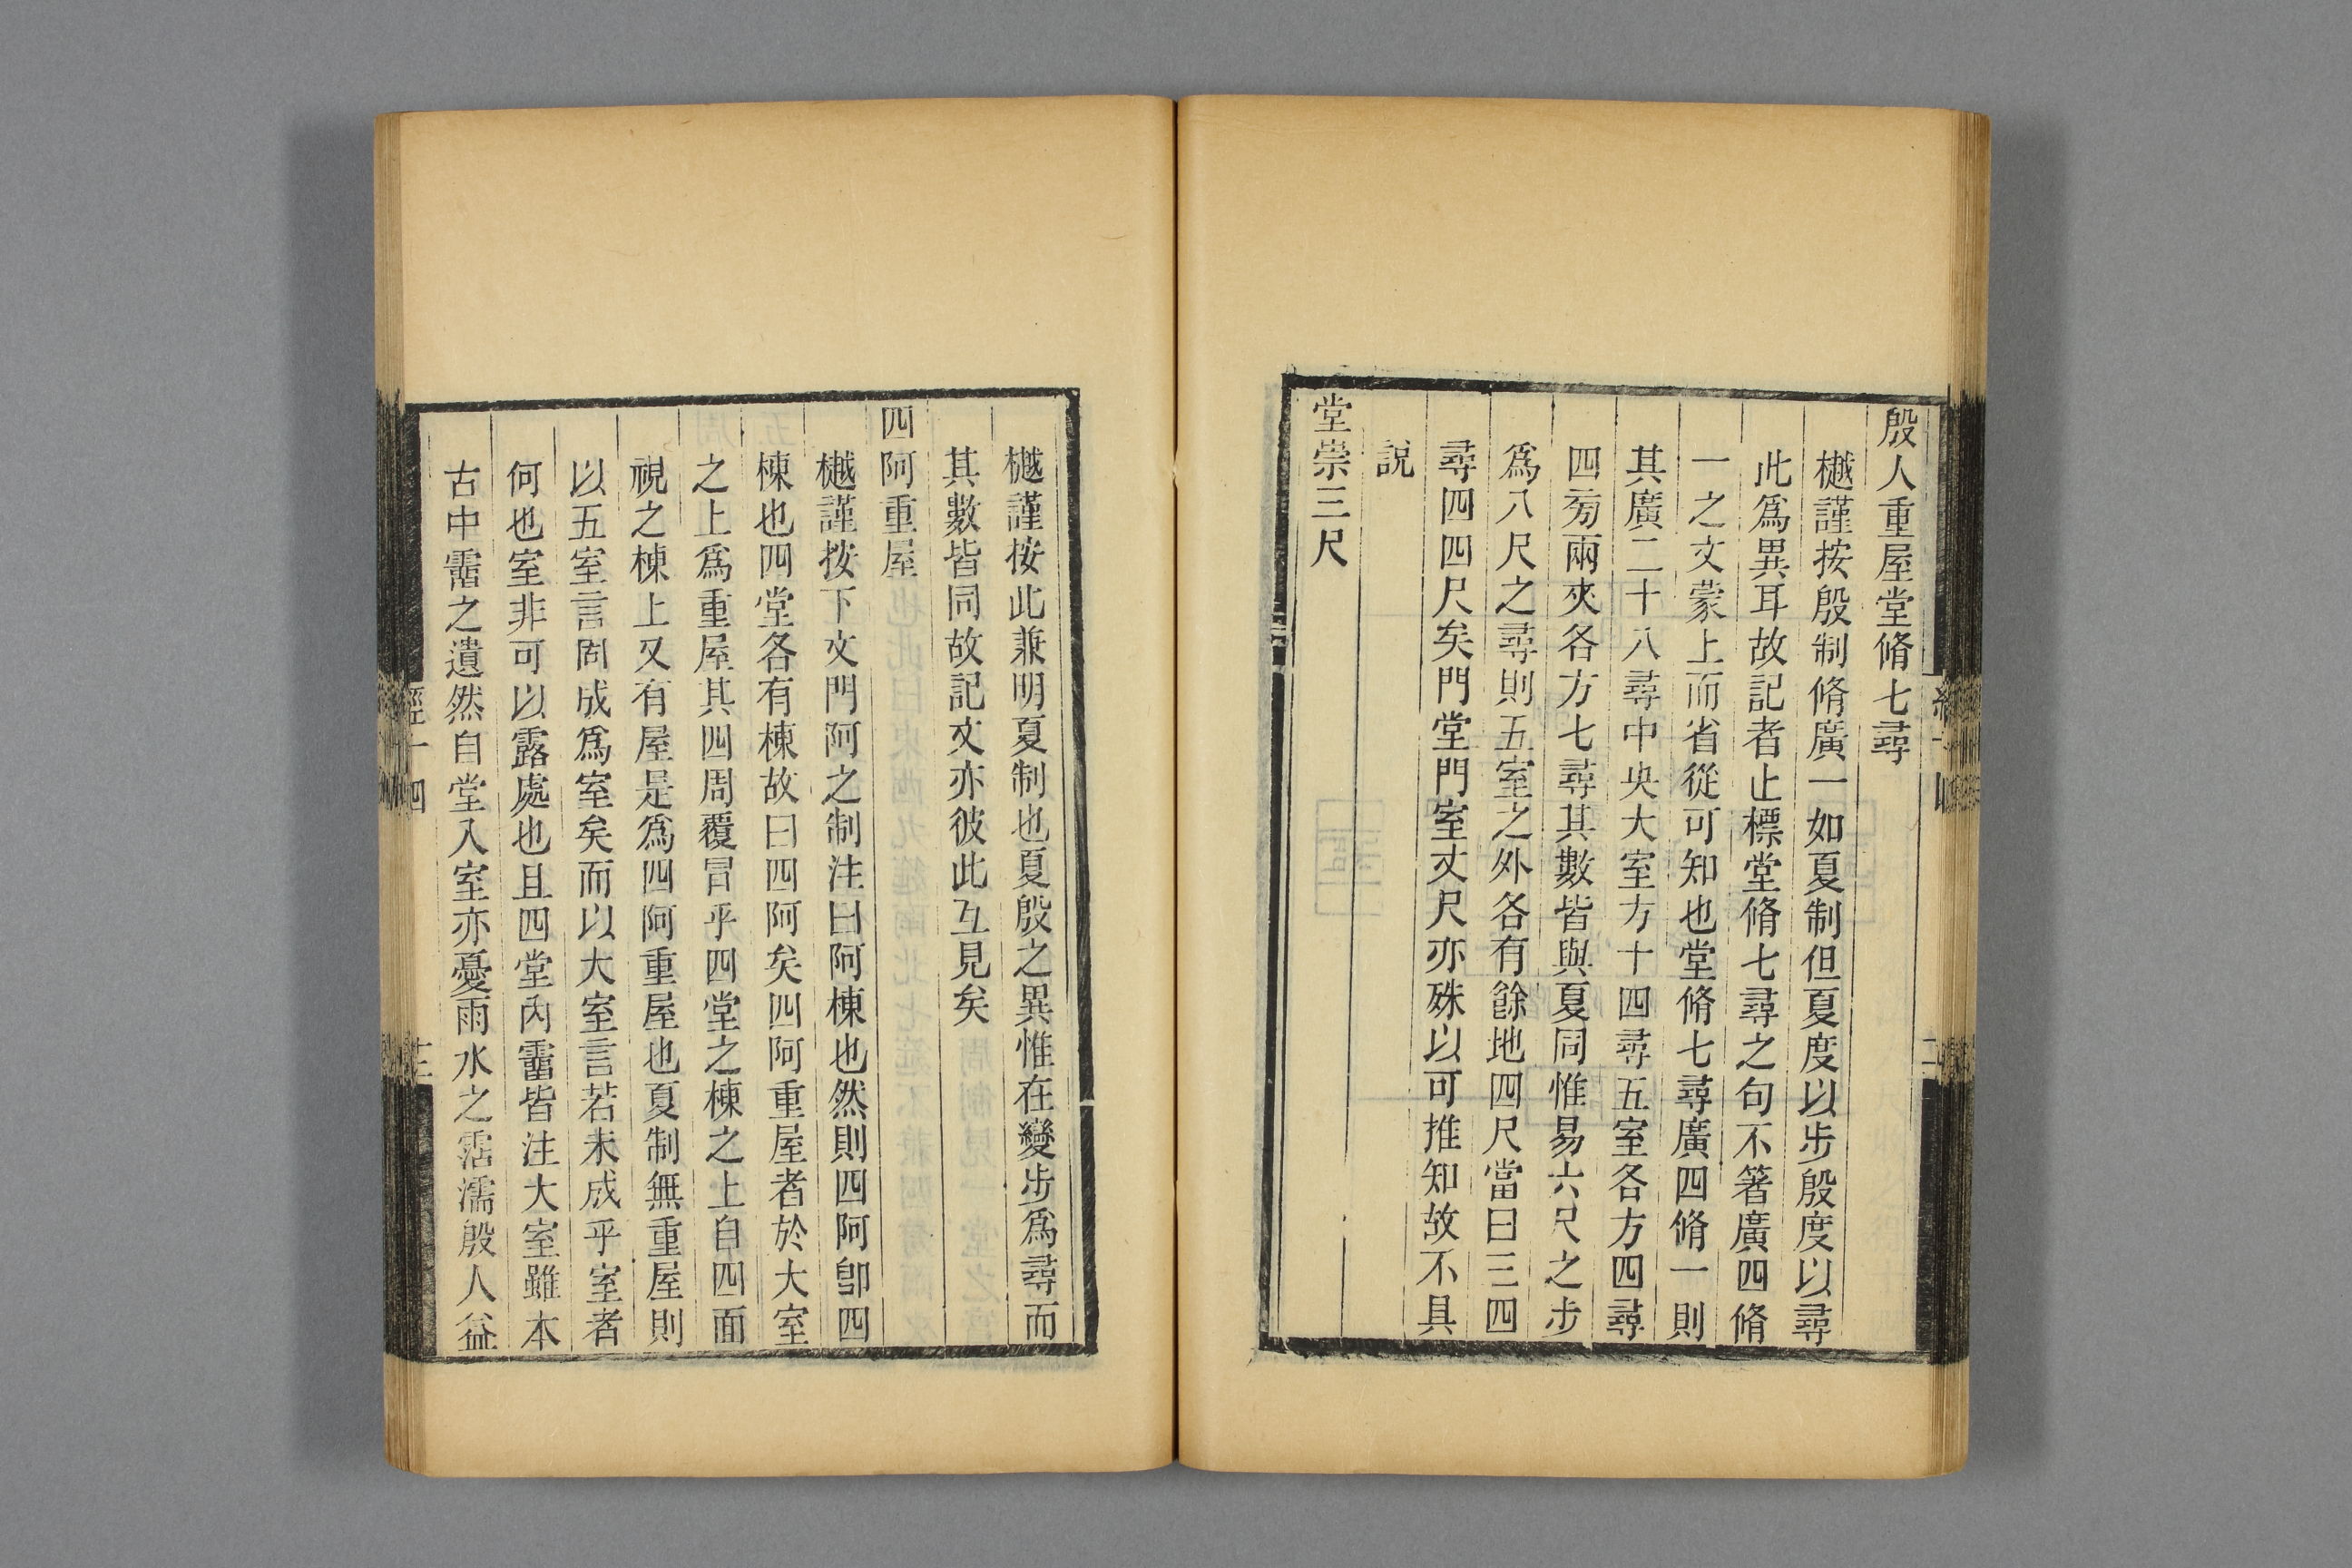 殷人重屋堂脩七尋
樾謹按殷制脩廣一如夏制但夏度以步殷度以尋
此爲異耳故記者止標堂脩七尋之句不箸廣四脩
一之文蒙上而省從可知也堂脩七尋廣四脩一則
其廣二十八尋中央大室方十四尋五室各方四尋
四旁兩夾各方七尋其數皆與夏同惟易六尺之步
爲八尺之尋則五室之外各有餘地四尺當曰三四
尋四四尺矣門堂門室丈尺亦殊以可推知故不具
說
堂崇三尺
樾謹按此兼明夏制也夏殷之異惟在變步爲尋而
其數皆同故記文亦彼此互見矣
四阿重屋
樾謹按下文門阿之制注曰阿棟也然則四阿卽四
棟也四堂各有棟故曰四阿矣四阿重屋者於大室
之上爲重屋其四周覆冒乎四堂之棟之上自四面
視之棟上又有屋是爲四阿重屋也夏制無重屋則
以五室言固成爲室矣而以大室言若未成乎室者
何也室非可以露處也且四堂內霤皆注大室雖本
古中霤之遺然自堂入室亦憂雨水之霑濡殷人益
經十四